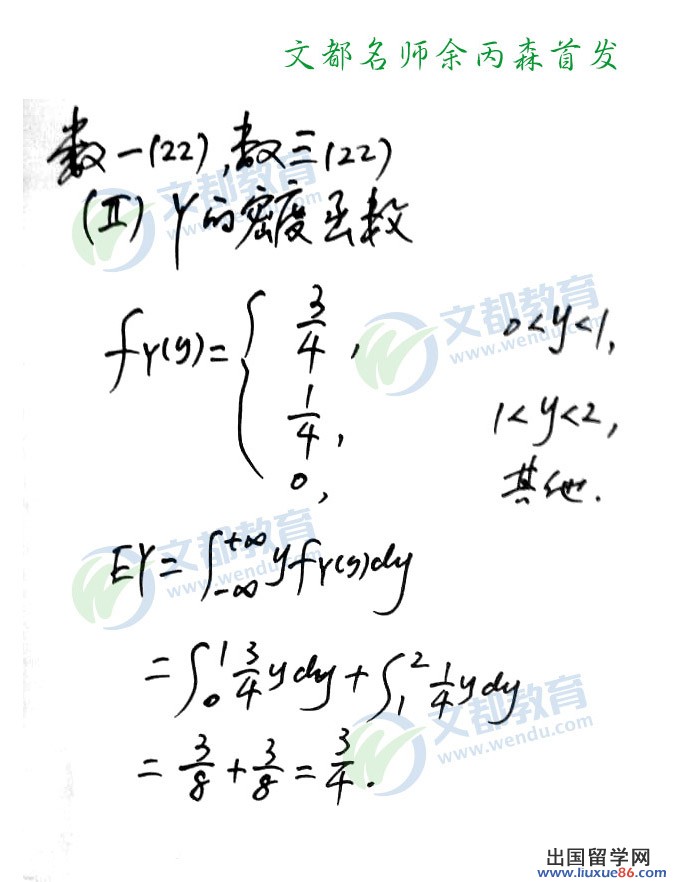 文都名师余丙森首发
数一(22),数三(22)
(Ⅱ) Y的密度函数
f_Y(y)={ 3/4, 0<y<1,
1/4, 1<y<2,
0, 其他.
文都教育
www.wendu.com
EY=∫_{-∞}^{+∞} y f_Y(y)dy
=∫_0^1 3/4 y dy+∫_1^2 1/4 y dy
=3/8+3/8=3/4.
文都教育
www.wendu.com
文都教育
www.wendu.com
文都教育
www.wendu.com
出国留学网
www.liuxue86.com